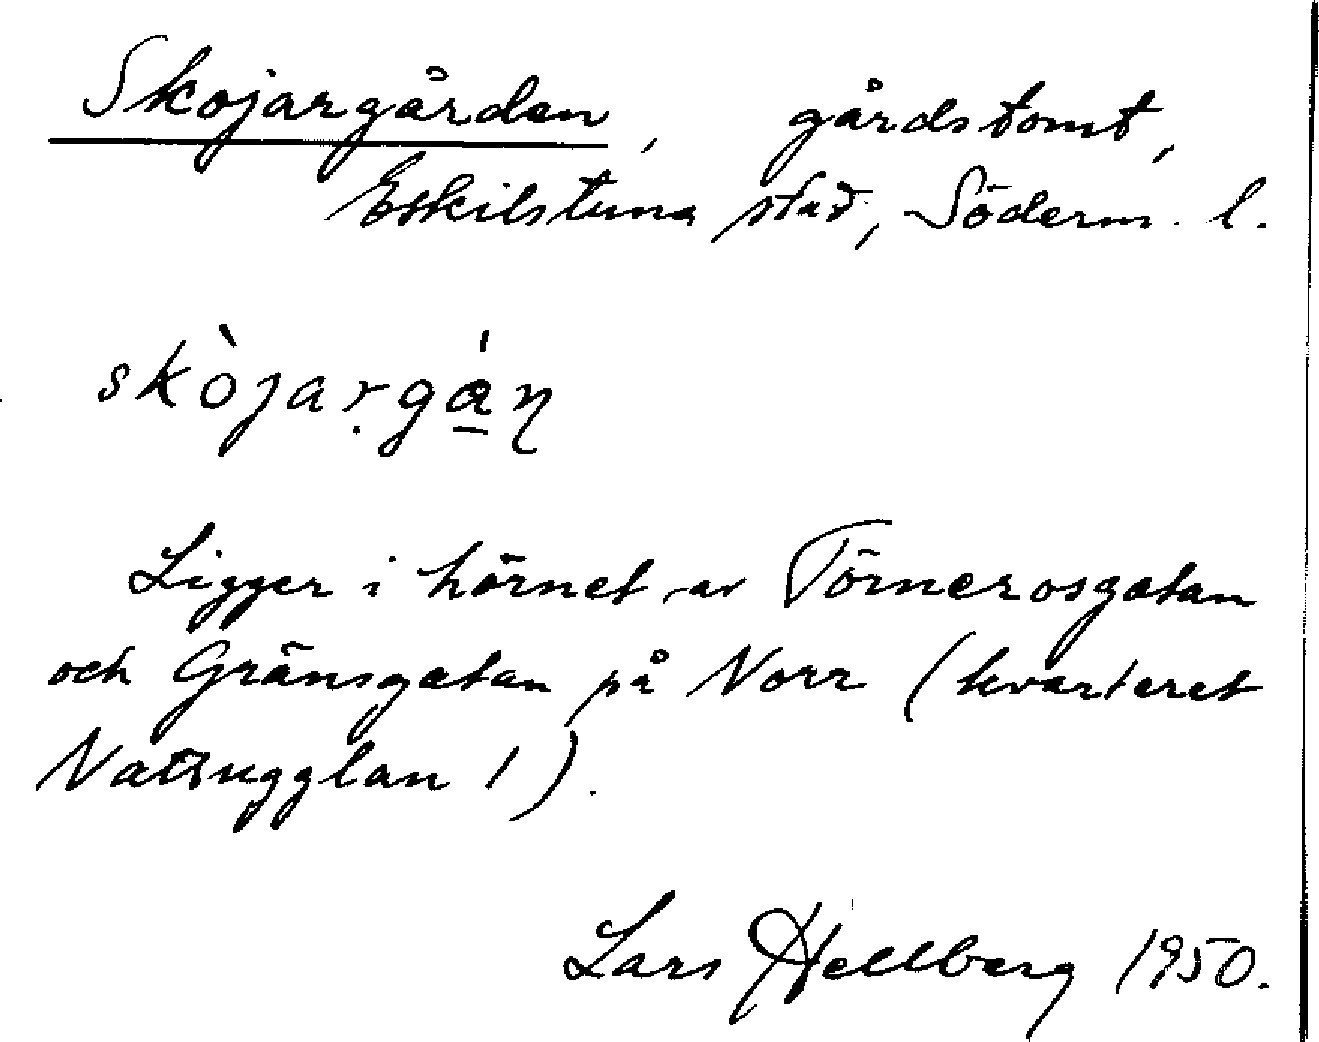 Skojargården, gårdstomt,
Eskilstuna stad, Söderm. l.
skòjarg̣á̲ŋ
Ligger i hörnet av Törnerosgatan
och Gränsgatan på Norr (kvarteret
Nattugglan 1).
Lars Hellberg 1950.